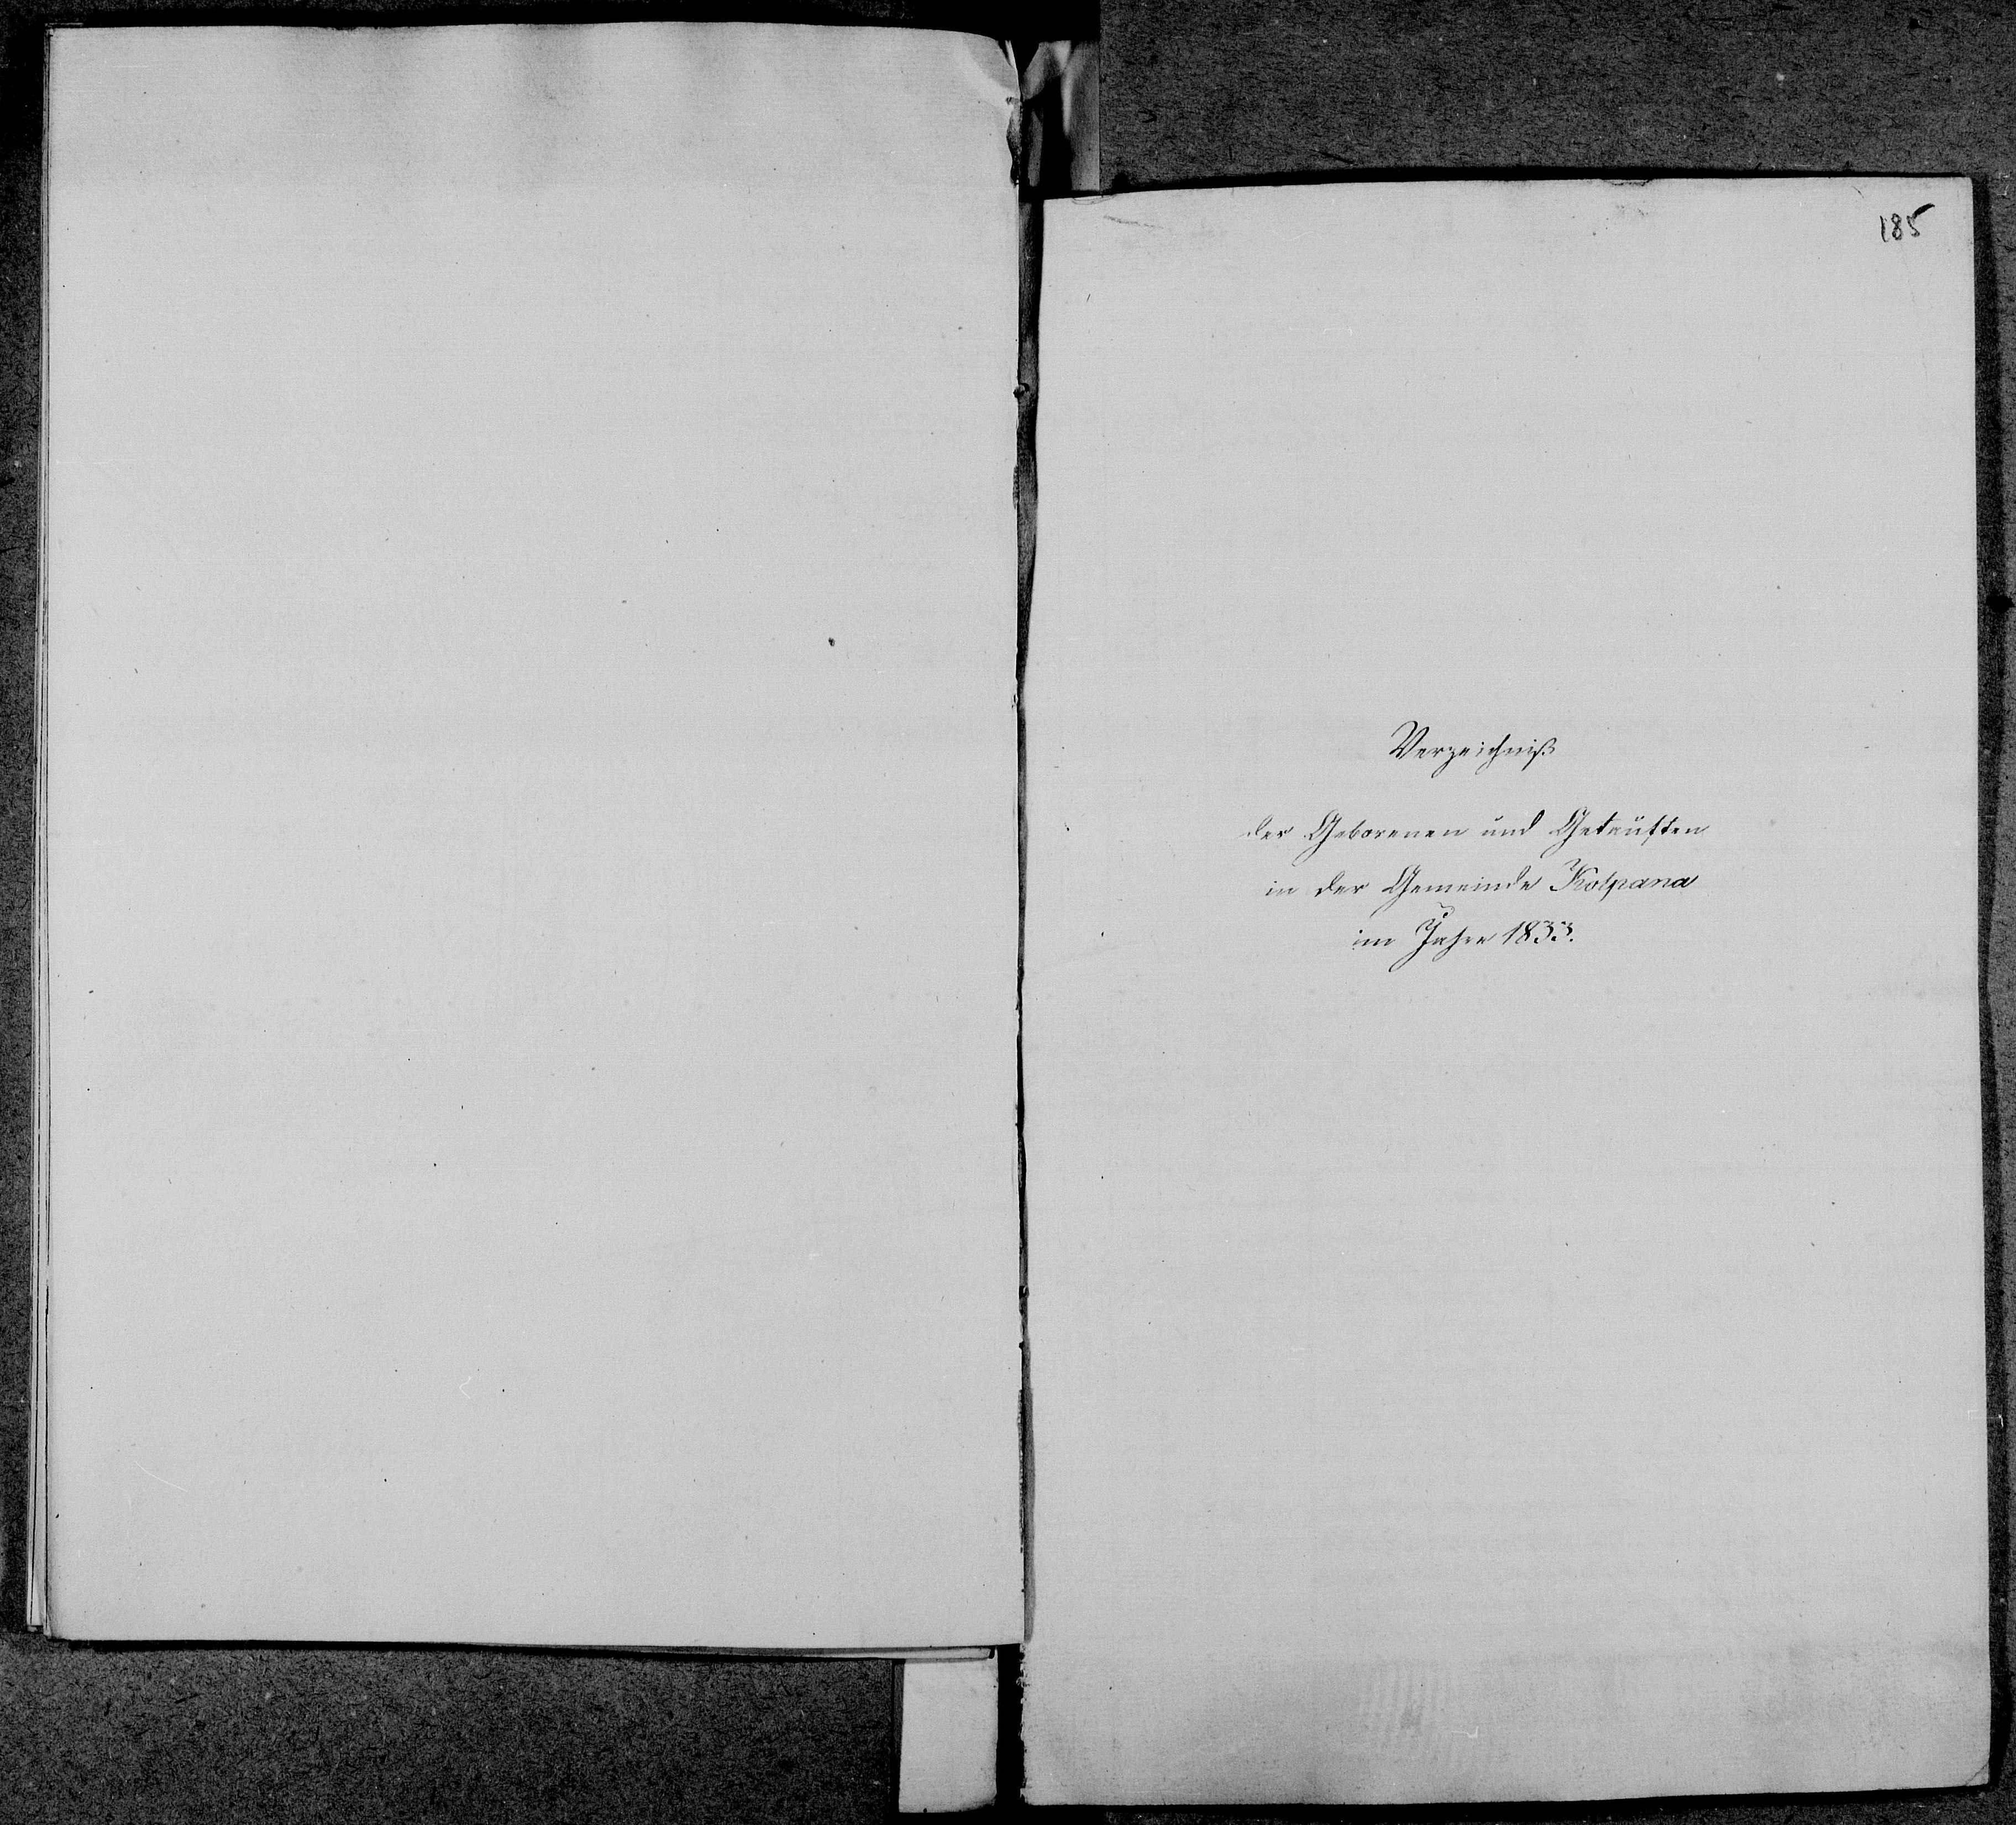 185
Verzeichniß
der Geborenen und Getauften
in der Gemeinde Kolpana
im Jahre 1833.